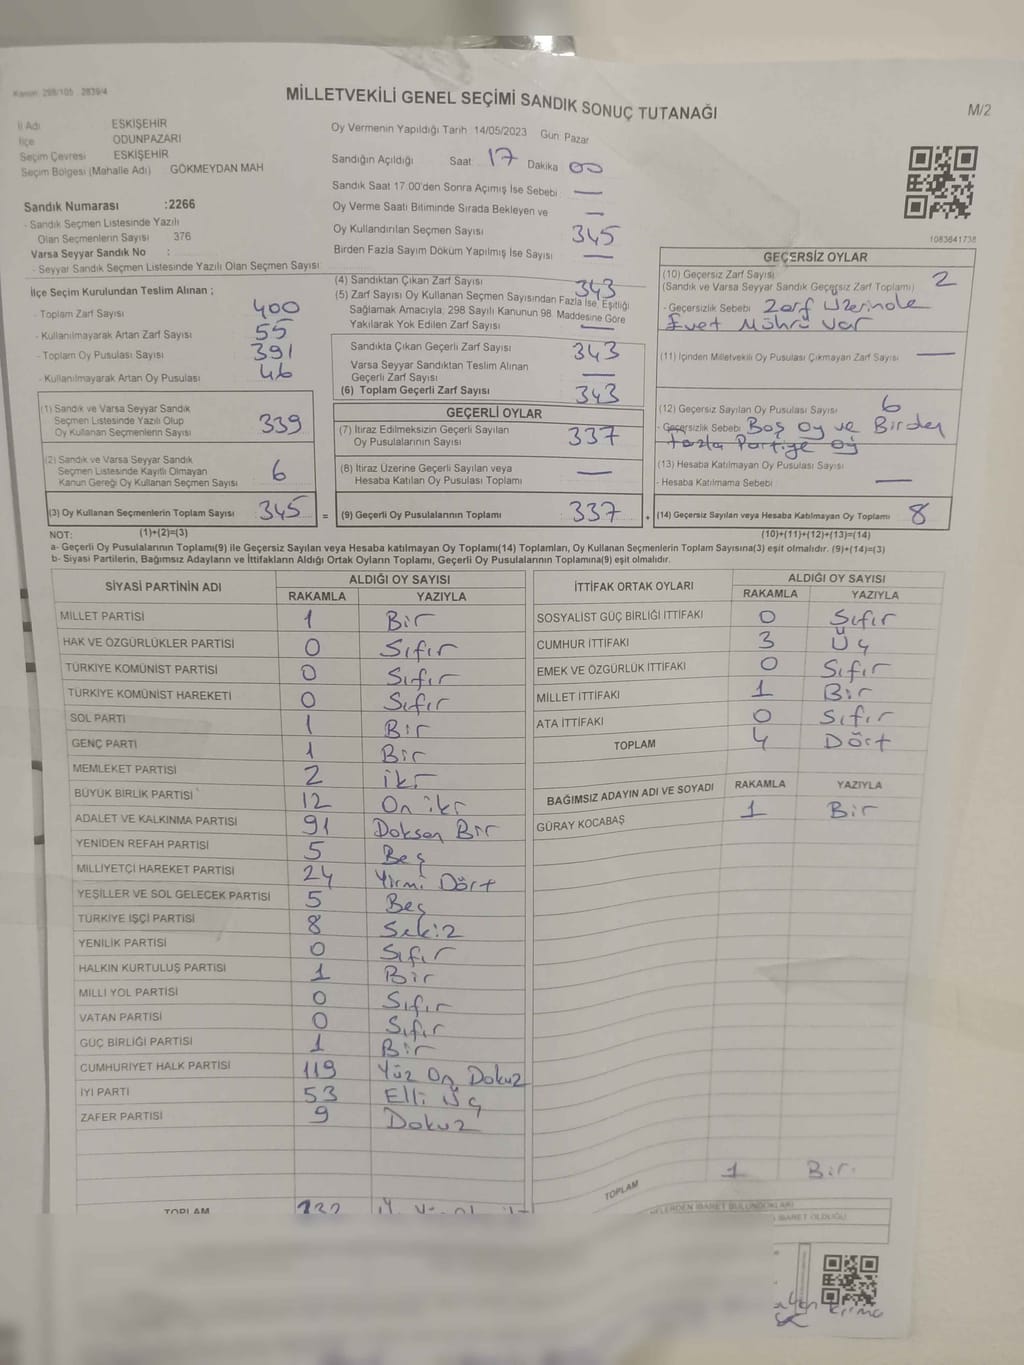 Kanun: 298/105 2839/4
MİLLETVEKİLİ GENEL SEÇİMİ SANDIK SONUÇ TUTANAĞI
M/2
İl Adı ESKİŞEHİR
İlçe ODUNPAZARI
Seçim Çevresi ESKİŞEHİR
Seçim Bölgesi (Mahalle Adı) GÖKMEYDAN MAH
Sandık Numarası :2266
- Sandık Seçmen Listesinde Yazılı
Olan Seçmenlerin Sayısı 376
Varsa Seyyar Sandık No :
- Seyyar Sandık Seçmen Listesinde Yazılı Olan Seçmen Sayısı:
İlçe Seçim Kurulundan Teslim Alınan ;
- Toplam Zarf Sayısı 400
- Kullanılmayarak Artan Zarf Sayısı 55
- Toplam Oy Pusulası Sayısı 391
- Kullanılmayarak Artan Oy Pusulası 46
(1) Sandık ve Varsa Seyyar Sandık
Seçmen Listesinde Yazılı Olup
Oy Kullanan Seçmenlerin Sayısı 339
(2) Sandık ve Varsa Seyyar Sandık
Seçmen Listesinde Kayıtlı Olmayan
Kanun Gereği Oy Kullanan Seçmen Sayısı 6
(3) Oy Kullanan Seçmenlerin Toplam Sayısı 345 =
Oy Vermenin Yapıldığı Tarih 14/05/2023 Gün Pazar
Sandığın Açıldığı Saat 17 Dakika 00
Sandık Saat 17:00'den Sonra Açımış İse Sebebi —
Oy Verme Saati Bitiminde Sırada Bekleyen ve —
Oy Kullandırılan Seçmen Sayısı 345
Birden Fazla Sayım Döküm Yapılmış İse Sayısı —
(4) Sandıktan Çıkan Zarf Sayısı 343
(5) Zarf Sayısı Oy Kullanan Seçmen Sayısından Fazla İse, Eşitliği
Sağlamak Amacıyla, 298 Sayılı Kanunun 98. Maddesine Göre
Yakılarak Yok Edilen Zarf Sayısı —
Sandıkta Çıkan Geçerli Zarf Sayısı 343
Varsa Seyyar Sandıktan Teslim Alınan
Geçerli Zarf Sayısı —
(6) Toplam Geçerli Zarf Sayısı 343
GEÇERLİ OYLAR
(7) İtiraz Edilmeksizin Geçerli Sayılan
Oy Pusulalarının Sayısı 337
(8) İtiraz Üzerine Geçerli Sayılan veya
Hesaba Katılan Oy Pusulası Toplamı —
(9) Geçerli Oy Pusulalarının Toplamı 337 +
1083641738
GEÇERSİZ OYLAR
(10) Geçersiz Zarf Sayısı 2
(Sandık ve Varsa Seyyar Sandık Geçersiz Zarf Toplamı)
- Geçersizlik Sebebi Zarf Üzerinde
Evet Mührü var
(11) İçinden Milletvekili Oy Pusulası Çıkmayan Zarf Sayısı —
(12) Geçersiz Sayılan Oy Pusulası Sayısı 6
- Geçersizlik Sebebi Boş oy ve Birden
fazla Partiye oy
(13) Hesaba Katılmayan Oy Pusulası Sayısı
- Hesaba Katılmama Sebebi —
(14) Geçersiz Sayılan veya Hesaba Katılmayan Oy Toplamı 8
NOT: (1)+(2)=(3) (10)+(11)+(12)+(13)=(14)
a- Geçerli Oy Pusulalarının Toplamı(9) ile Geçersiz Sayılan veya Hesaba katılmayan Oy Toplamı(14) Toplamları, Oy Kullanan Seçmenlerin Toplam Sayısına(3) eşit olmalıdır. (9)+(14)=(3)
b- Siyasi Partilerin, Bağımsız Adayların ve İttifakların Aldığı Ortak Oyların Toplamı, Geçerli Oy Pusulalarının Toplamına(9) eşit olmalıdır.
SİYASİ PARTİNİN ADI ALDIĞI OY SAYISI
RAKAMLA YAZIYLA
MİLLET PARTİSİ 1 Bir
HAK VE ÖZGÜRLÜKLER PARTİSİ 0 Sıfır
TÜRKİYE KOMÜNİST PARTİSİ 0 Sıfır
TÜRKİYE KOMÜNİST HAREKETİ 0 Sıfır
SOL PARTİ 1 Bir
GENÇ PARTİ 1 Bir
MEMLEKET PARTİSİ 2 iki
BÜYÜK BİRLİK PARTİSİ 12 On iki
ADALET VE KALKINMA PARTİSİ 91 Doksan Bir
YENİDEN REFAH PARTİSİ 5 Beş
MİLLİYETÇİ HAREKET PARTİSİ 24 Yirmi Dört
YEŞİLLER VE SOL GELECEK PARTİSİ 5 Beş
TÜRKİYE İŞÇİ PARTİSİ 8 Sekiz
YENİLİK PARTİSİ 0 Sıfır
HALKIN KURTULUŞ PARTİSİ 1 Bir
MİLLİ YOL PARTİSİ 0 Sıfır
VATAN PARTİSİ 0 Sıfır
GÜÇ BİRLİĞİ PARTİSİ 1 Bir
CUMHURİYET HALK PARTİSİ 119 Yüz On Dokuz
İYİ PARTİ 53 Elli Üç
ZAFER PARTİSİ 9 Dokuz
TOPLAM
İTTİFAK ORTAK OYLARI ALDIĞI OY SAYISI
RAKAMLA YAZIYLA
SOSYALİST GÜÇ BİRLİĞİ İTTİFAKI 0 Sıfır
CUMHUR İTTİFAKI 3 Üç
EMEK VE ÖZGÜRLÜK İTTİFAKI 0 Sıfır
MİLLET İTTİFAKI 1 Bir
ATA İTTİFAKI 0 Sıfır
TOPLAM 4 Dört
BAĞIMSIZ ADAYIN ADI VE SOYADI RAKAMLA YAZIYLA
GÜRAY KOCABAŞ 1 Bir
TOPLAM 1 Bir